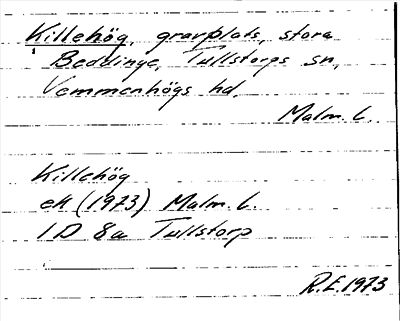 Killehög, gravplats, stora
Beddinge, Tullstorps sn,
Vemmenhögs hd.
Malm. l.
Killehög
ek (1973) Malm. l.
1D 8a Tullstorp
R.E. 1973